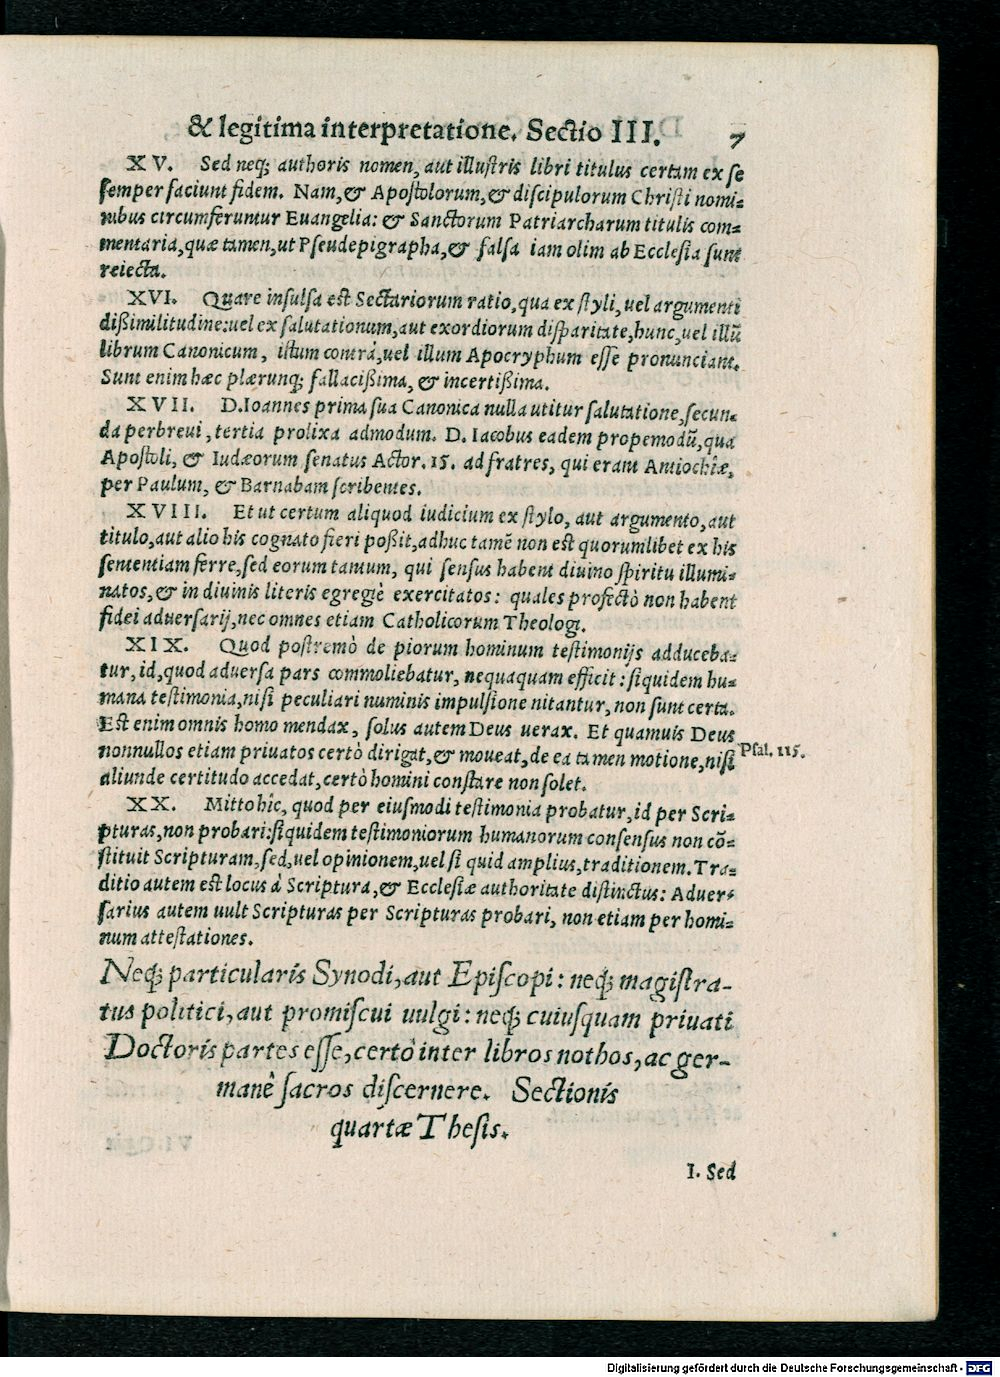 & legitima interpretatione. Sectio III. 7
XV. Sed neq; authoris nomen, aut illustris libri titulus certam ex se
semper faciunt fidem. Nam, & Apostolorum, & discipulorum Christi nomi=
nibus circumferuntur Euangelia: & Sanctorum Patriarcharum titulis com=
mentaria, quæ tamen, ut Pseudepigrapha, & falsa iam olim ab Ecclesia sunt
reiecta.
XVI. Quare insulsa est Sectariorum ratio, qua ex styli, uel argumenti
dißimilitudine: uel ex salutationum, aut exordiorum disparitate, hunc, uel illū
librum Canonicum, istum contrá, uel illum Apocryphum esse pronunciant.
Sunt enim hæc plærunq; fallacißima, & incertißima.
XVII. D. Ioannes prima sua Canonica nulla utitur salutatione, secun=
da perbreui, tertia prolixa admodum. D. Iacobus eadem propemodū, qua
Apostoli, & Iudæorum senatus Actor. 15. ad fratres, qui erant Antiochiæ,
per Paulum, & Barnabam scribentes.
XVIII. Et ut certum aliquod iudicium ex stylo, aut argumento, aut
titulo, aut alio his cognato fieri poßit, adhuc tamē non est quorumlibet ex his
sententiam ferre, sed eorum tantum, qui sensus habent diuino spiritu illumi=
natos, & in diuinis literis egregiè exercitatos: quales profectò non habent
fidei aduersarij, nec omnes etiam Catholicorum Theologi.
XIX. Quod postremò de piorum hominum testimonijs adduceba=
tur, id, quod aduersa pars commoliebatur, nequaquam efficit: siquidem hu=
mana testimonia, nisi peculiari numinis impulsione nitantur, non sunt certa.
Est enim omnis homo mendax, solus autem Deus uerax. Et quamuis Deus
nonnullos etiam priuatos certò dirigat, & moueat, de ea tamen motione, nisi
Psal. 115.
aliunde certitudo accedat, certò homini constare non solet.
XX. Mitto hîc, quod per eiusmodi testimonia probatur, id per Scri=
pturas, non probari: siquidem testimoniorum humanorum consensus non cō=
stituit Scripturam, sed, uel opinionem, uel si quid amplius, traditionem. Tra=
ditio autem est locus à Scriptura, & Ecclesiæ authoritate distinctus: Aduer=
sarius autem uult Scripturas per Scripturas probari, non etiam per homi=
num attestationes.
Neq; particularis Synodi, aut Episcopi: neq; magistra-
tus politici, aut promiscui uulgi: neq; cuiusquam priuati
Doctoris partes esse, certò inter libros nothos, ac ger-
manè sacros discernere. Sectionis
quartæ Thesis.
I. Sed
Digitalisierung gefördert durch die Deutsche Forschungsgemeinschaft - DFG